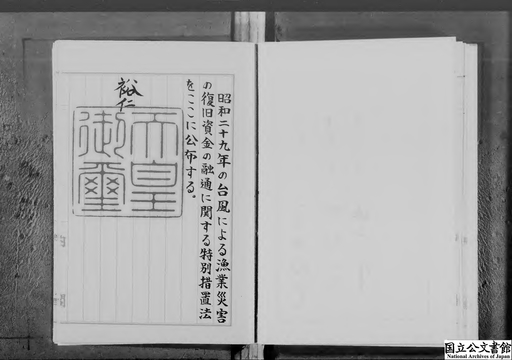 昭和二十九年の台風による漁業災害
の復旧資金の融通に関する特別措置法
をここに公布する。
裕仁
天皇
御璽
国立公文書館
National Archives of Japan